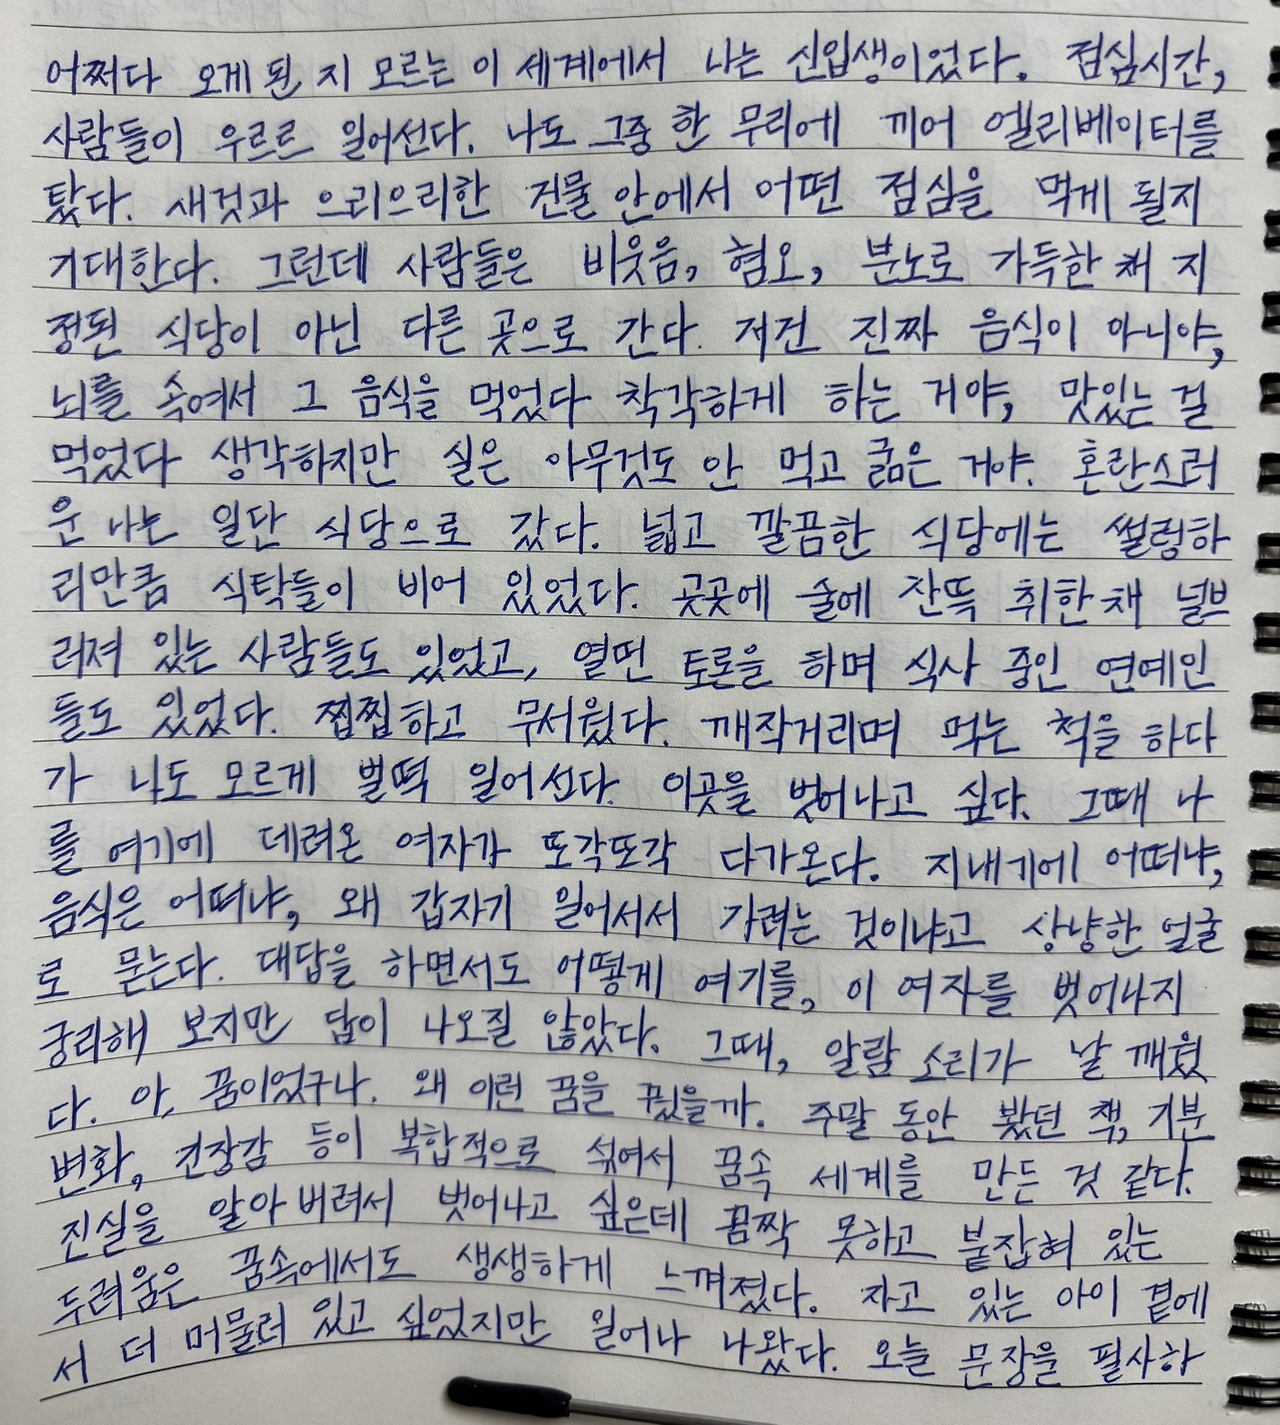 어쩌다 오게 된 지 모르는 이 세계에서 나는 신입생이었다. 점심시간,
사람들이 우르르 일어선다. 나도 그중 한 무리에 끼어 엘리베이터를
탔다. 새것과 으리으리한 건물 안에서 어떤 점심을 먹게 될지
기대한다. 그런데 사람들은 비웃음, 혐오, 분노로 가득한 채 지
정된 식당이 아닌 다른 곳으로 간다. 저건 진짜 음식이 아니야,
뇌를 속여서 그 음식을 먹었다 착각하게 하는 거야, 맛있는 걸
먹었다 생각하지만 실은 아무것도 안 먹고 굶은 거야. 혼란스러
운 나는 일단 식당으로 갔다. 넓고 깔끔한 식당에는 썰렁하
리만큼 식탁들이 비어 있었다. 곳곳에 술에 잔뜩 취한 채 널브
러져 있는 사람들도 있었고, 열띤 토론을 하며 식사 중인 연예인
들도 있었다. 찝찝하고 무서웠다. 깨작거리며 먹는 척을 하다
가 나도 모르게 벌떡 일어선다. 이곳을 벗어나고 싶다. 그때 나
를 여기에 데려온 여자가 또각또각 다가온다. 지내기에 어떠냐,
음식은 어떠냐, 왜 갑자기 일어서서 가려는 것이냐고 상냥한 얼굴
로 묻는다. 대답을 하면서도 어떻게 여기를, 이 여자를 벗어나지
궁리해 보지만 답이 나오질 않았다. 그때, 알람 소리가 날 깨웠
다. 아, 꿈이었구나. 왜 이런 꿈을 꿨을까. 주말 동안 봤던 책, 기분
변화, 긴장감 등이 복합적으로 섞여서 꿈속 세계를 만든 것 같다.
진실을 알아 버려서 벗어나고 싶은데 꼼짝 못하고 붙잡혀 있는
두려움은 꿈속에서도 생생하게 느껴졌다. 자고 있는 아이 곁에
서 더 머물러 있고 싶었지만 일어나 나왔다. 오늘 문장을 필사하